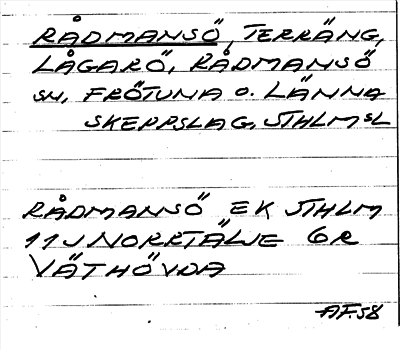 RÅDMANSÖ, TERRÄNG,
LÅGARÖ, RÅDMANSÖ
SN, FRÖTUNA O. LÄNNA
SKEPPSLAG, STHLMSL
RÅDMANSÖ EK STHLM
11J NORRTÄLJE 6R
VÄTHÖVDA
AF.58